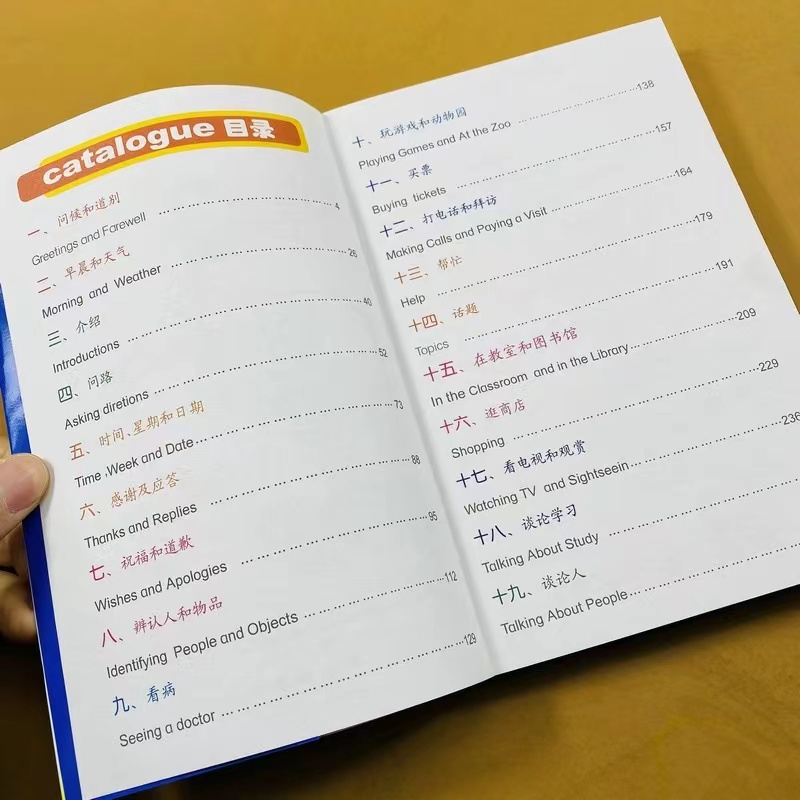 catalogue 目录
一、问候和道别
Greetings and Farewell ……………………… 4
二、早晨和天气
Morning and Weather ……………………… 26
三、介绍
Introductions ……………………… 40
四、问路
Asking diretions ……………………… 52
五、时间、星期和日期
Time ,Week and Date ……………………… 73
六、感谢及应答
Thanks and Replies ……………………… 88
七、祝福和道歉
Wishes and Apologies ……………………… 95
八、辨认人和物品
Identifying People and Objects ……………………… 112
九、看病
Seeing a doctor ……………………… 129
十、玩游戏和动物园
Playing Games and At the Zoo ……………………… 138
十一、买票
Buying tickets ……………………… 157
十二、打电话和拜访
Making Calls and Paying a Visit ……………………… 164
十三、帮忙
Help ……………………… 179
十四、话题
Topics ……………………… 191
十五、在教室和图书馆
In the Classroom and in the Library ……………………… 209
十六、逛商店
Shopping ……………………… 229
十七、看电视和观赏
Watching TV and Sightseein ……………………… 236
十八、谈论学习
Talking About Study ………………………
十九、谈论人
Talking About People ………………………